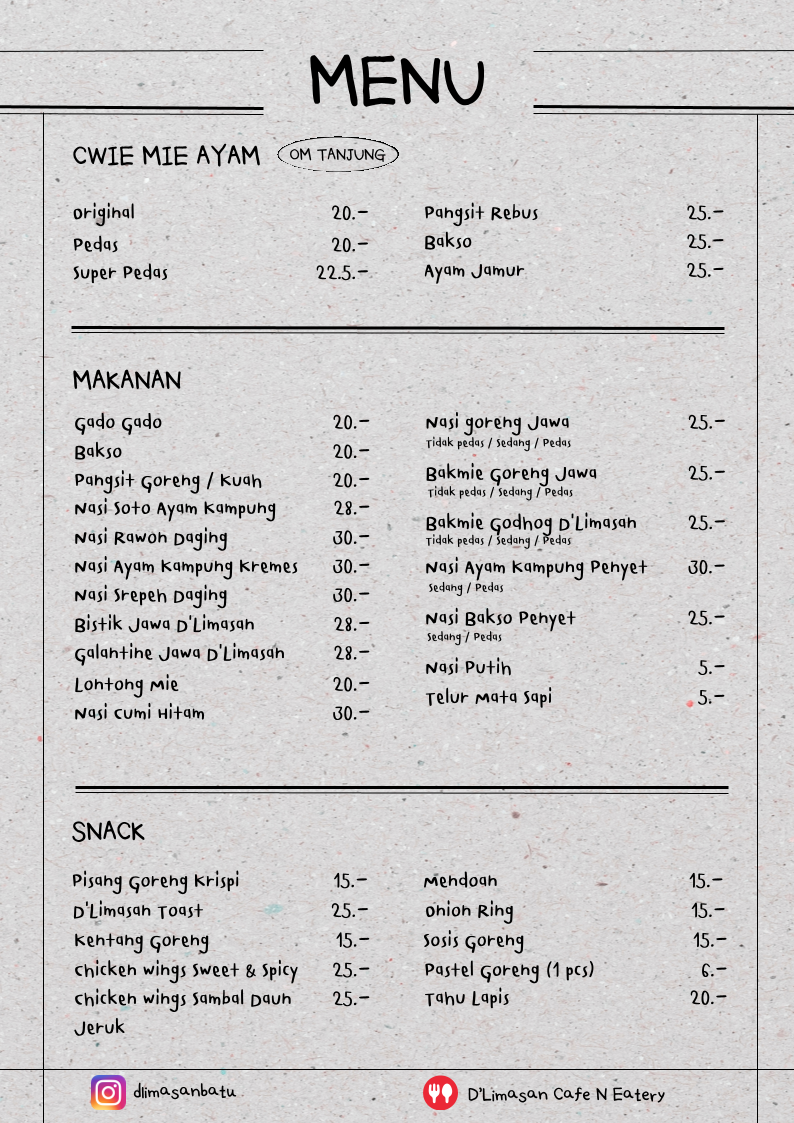 MENU
CWIE MIE AYAM OM TANJUNG
original 20.-
Pedas 20.-
Super Pedas 22.5.-
Pangsit Rebus 25.-
Bakso 25.-
Ayam Jamur 25.-
MAKANAN
Gado Gado 20.-
Bakso 20.-
Pangsit Goreng / Kuah 20.-
Nasi Soto Ayam Kampung 28.-
Nasi Rawon Daging 30.-
Nasi Ayam Kampung Kremes 30.-
Nasi Srepeh Daging 30.-
Bistik Jawa D'Limasan 28.-
Galantine Jawa D'Limasan 28.-
Lontong Mie 20.-
Nasi Cumi Hitam 30.-
Nasi goreng Jawa 25.-
Tidak pedas / Sedang / Pedas
Bakmie Goreng Jawa 25.-
Tidak pedas / Sedang / Pedas
Bakmie Godhog D'Limasan 25.-
Tidak pedas / Sedang / Pedas
Nasi Ayam Kampung Penyet 30.-
Sedang / Pedas
Nasi Bakso Penyet 25.-
Sedang / Pedas
Nasi Putih 5.-
Telur Mata Sapi 5.-
SNACK
Pisang Goreng Krispi 15.-
D'Limasan Toast 25.-
Kentang Goreng 15.-
Chicken wings Sweet & Spicy 25.-
Chicken wings Sambal Daun 25.-
Jeruk
Mendoan 15.-
Onion Ring 15.-
Sosis Goreng 15.-
Pastel Goreng (1 pcs) 6.-
Tahu Lapis 20.-
dlimasanbatu
D'Limasan Cafe N Eatery